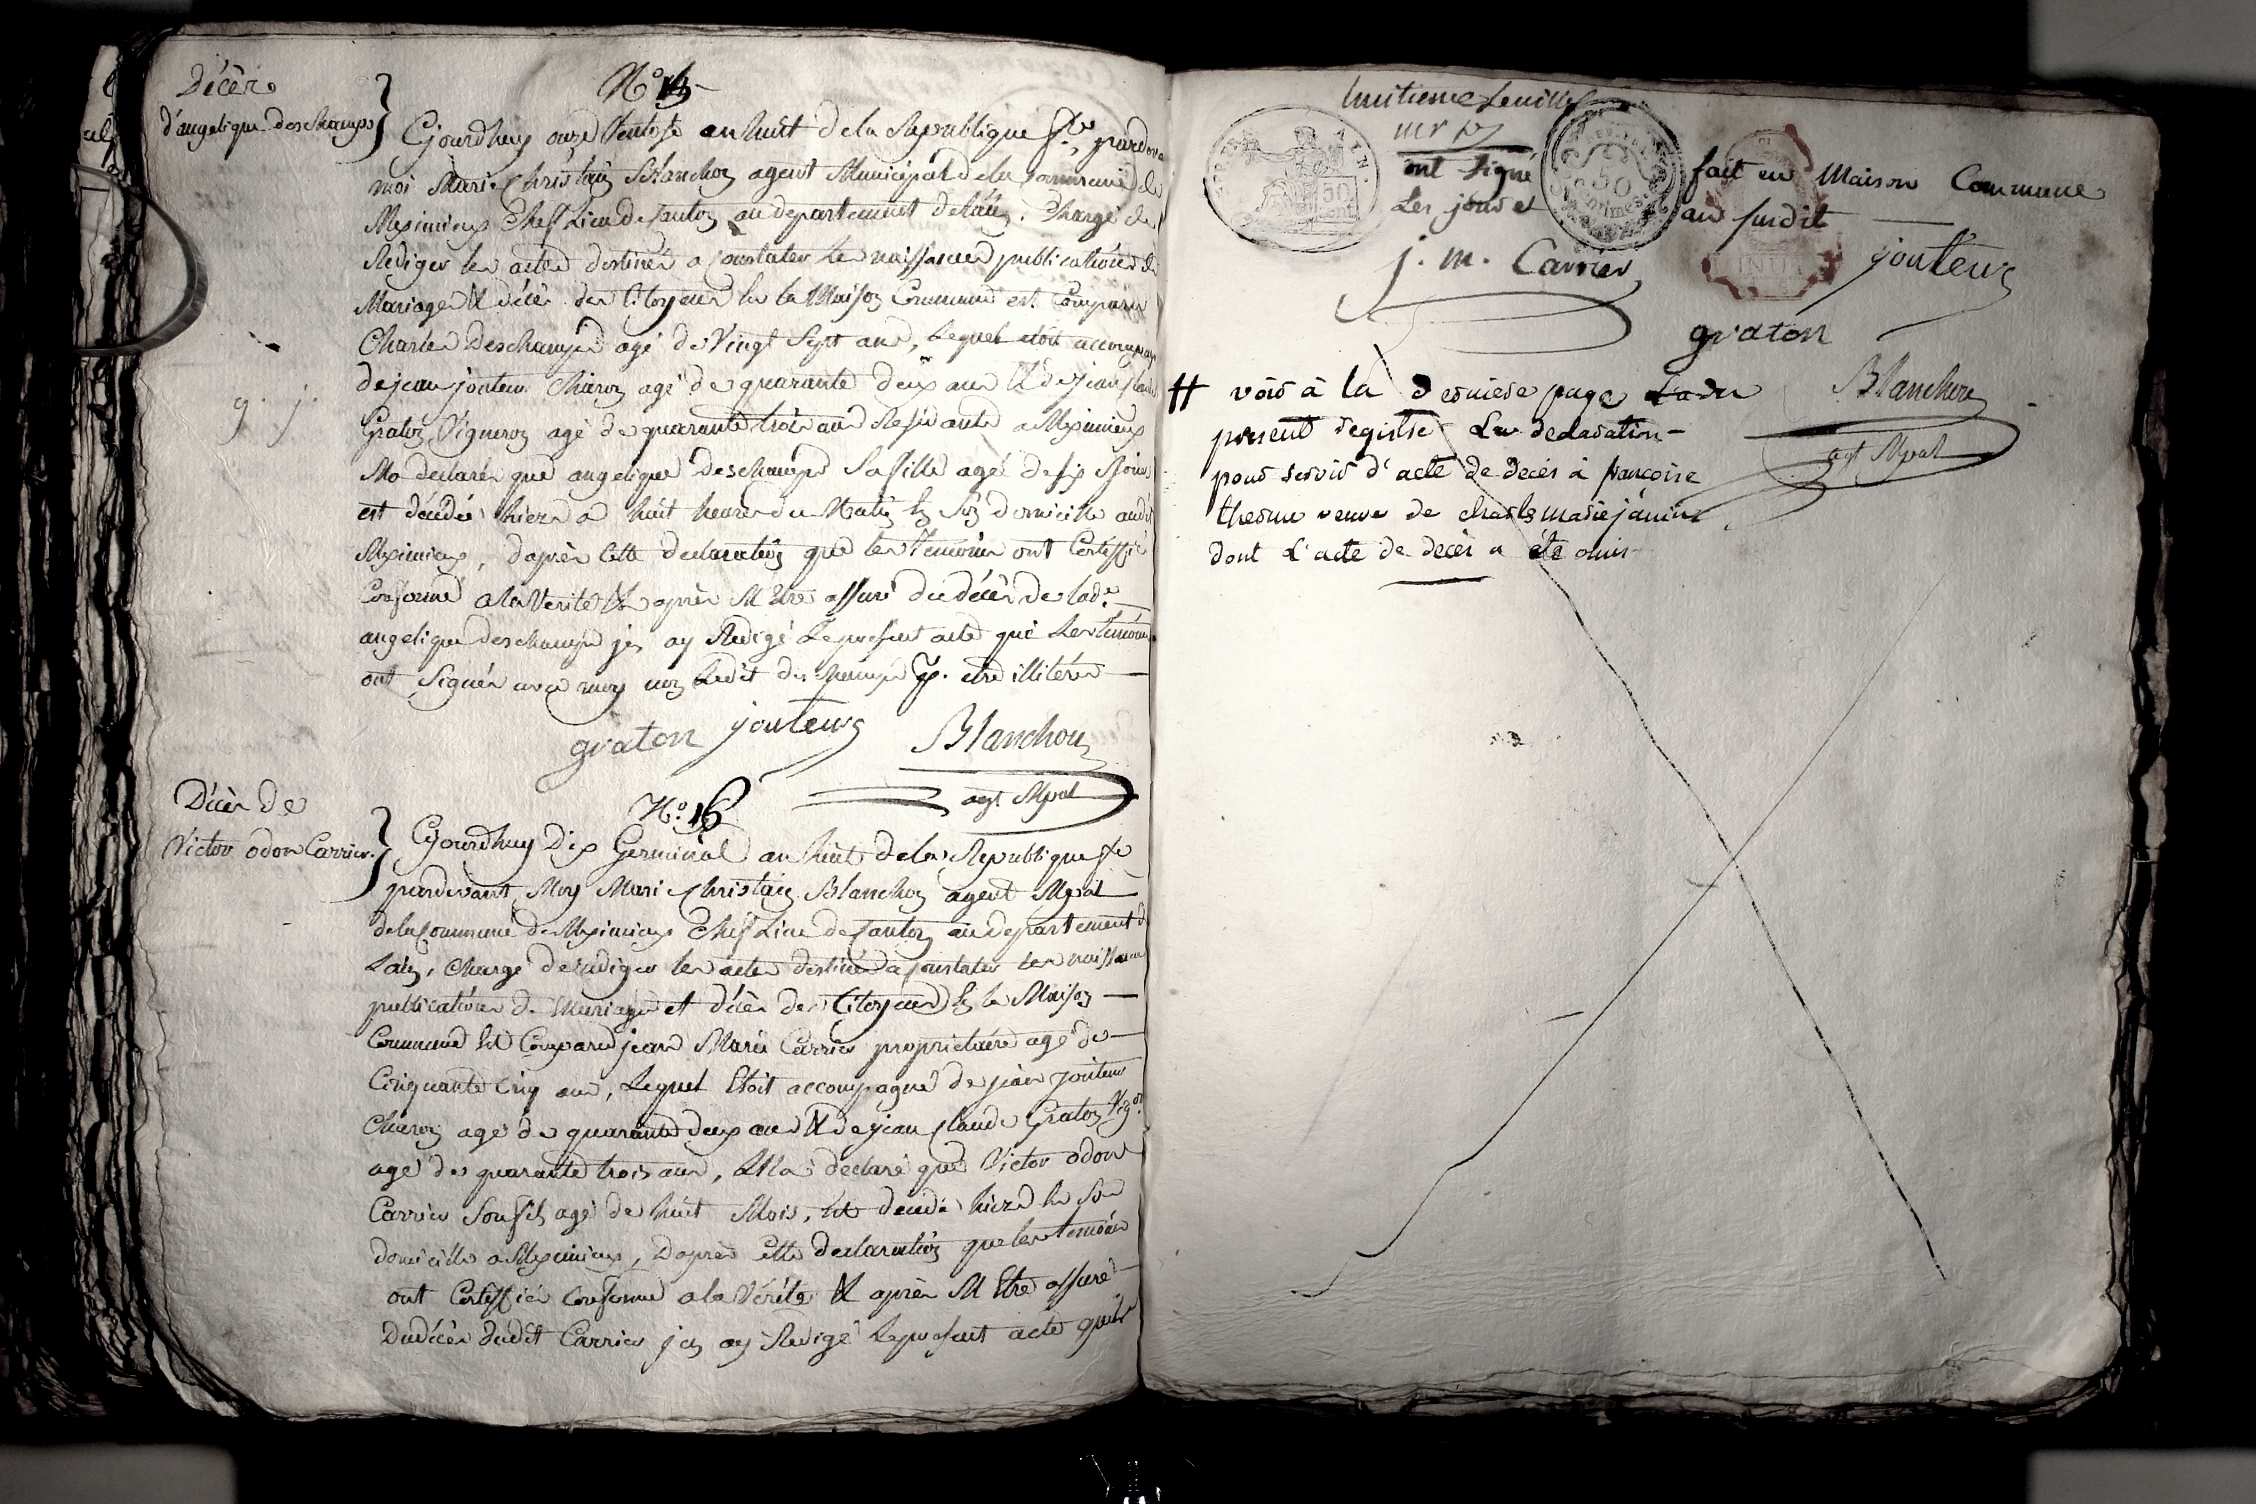 Décès
d'angelique deschamps
N.o 15
Cejourdhuy onze Ventose an huit de la Republique f.se pardevant
moi Marie Christain Blanchon agent Municipal de la Commune de
Meximieux Chef Lieu de Canton au departement de Lain. Chargé de
Rediger les actes destinés a Constater les naissances publications de
Mariage & décès des Citoyens en la Maison Commune est Comparu
Charles Deschamps agé de Vingt Sept ans, Lequel etoit accompagné
de jean jouteur Charon agé de quarante deux ans & de jean Claude
Graton, Vigneron agé de quarante trois ans Residants a Meximieux
Ma declaré que angelique Deschamps Sa fille agé de six Mois
est décédé hierd a huit heures du Matin en Son domicille audit
Meximieux, d'après Cette declaration que les Temoins ont Certiffié
Conforme a la Verité & après M'être assuré du décès de lad.te
angelique deschamps jen ay Redigé Le present acte que Les temoins
ont Signés avec moy non Ledit deschamps p. etre illitéré
graton jouteur Blanchon
agt Mpal
g. j.
Décès de
Victor odon Carrier.
N.o 16
Cejourdhuy Dix Germinal an huit de la Republique f.se
pardevant Moy Mari Christain Blanchon agent Mpal
de la Commune de Meximieux Chef Lieu de Canton au departement de
Lain, Chargé de rediger les actes destinés a Constater les naissances
publications de Mariages et décès des Citoyens en la Maison
Commune Est Comparu jean Marie Carrier propriétaire agé de
Cinquante Cinq ans, Lequel Etoit accompagné de jean jouteur
Charon agé de quarante deux ans & de jean Claude Graton Vig.on
agé de quarante trois ans, Ma declaré que Victor odon
Carrier Son fils agé de huit Mois, est décédé hierd en Son
domicille a Meximieux, D'apres Cette declaration que les temoins
ont Certiffiés Conforme a la Vérité & après M'Etre assuré
Du décès dudit Carrier jen ay Redigé Le present acte qu'ils
huitieme feuillet
ont signé fait en Maison Commune
Les jour et an susdit
j. m. Carrier jouteur
graton
Blanchon
agt Mpal
voir à la derniere page du
present registre La declaration
pour servir d'acte de décès à françoise
veuve de charle marie janin
dont L'acte de décès a été omis